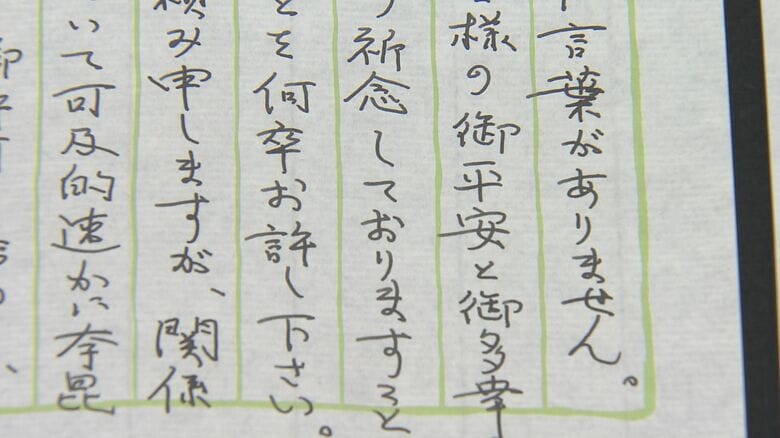 言葉がありません。
様の御平安と御多幸
祈念しておりますこと
とを何卒お許し下さい。
み申しますが、関係
いて可及的速かに奈毘